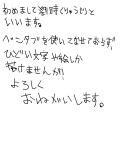 初めまして劉時(りゅうじ)と
いいます。
ペンタブを使いこなせておらず
ひどい文字や絵しか
描けませんが!
よろしく
おねがいします。